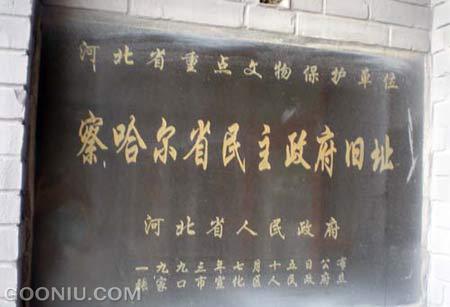 河北省重点文物保护单位
察哈尔省民主政府旧址
河北省人民政府
一九九三年七月十五日公布
张家口市宣化区人民政府立
GOONIU.COM